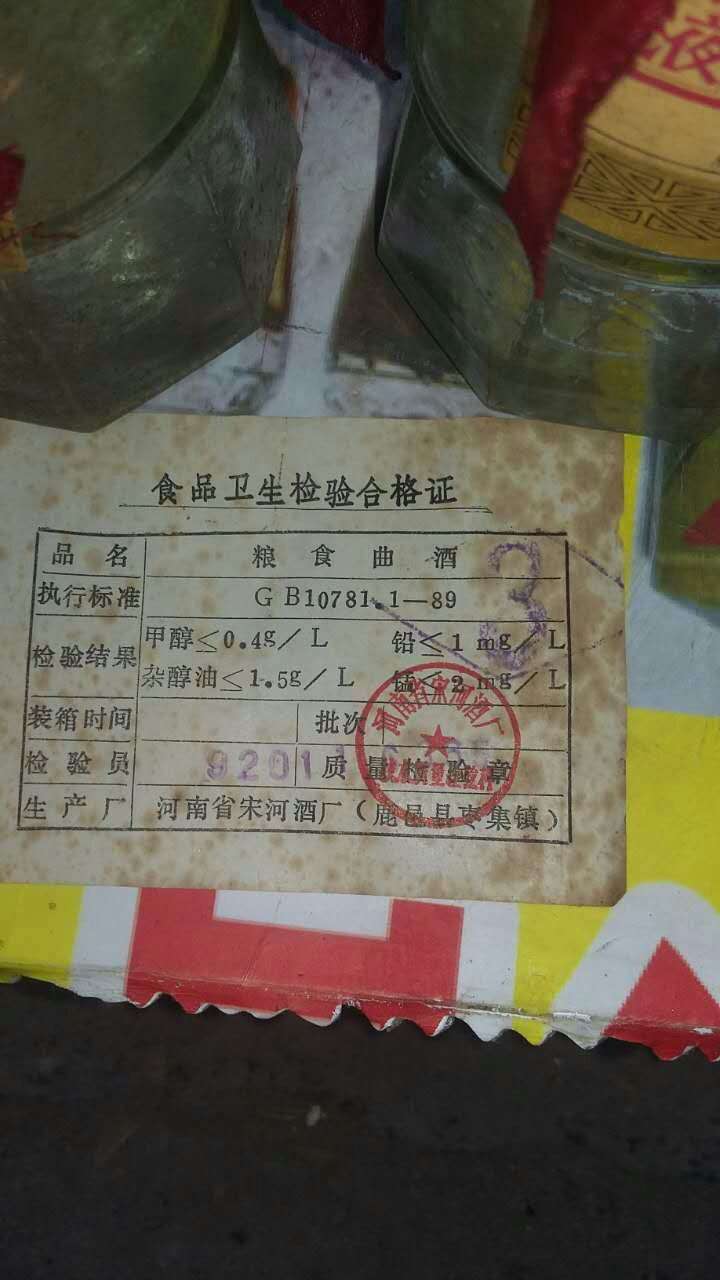 液
食品卫生检验合格证
品名 粮食曲酒
3
执行标准 GB10781.1—89
检验结果 甲醇≤0.4g/L 铅≤1mg/L
杂醇油≤1.5g/L 锰≤2mg/L
河南省宋河酒厂
装箱时间 批次
检验员 质量检验章
9201
生产厂 河南省宋河酒厂(鹿邑县枣集镇)